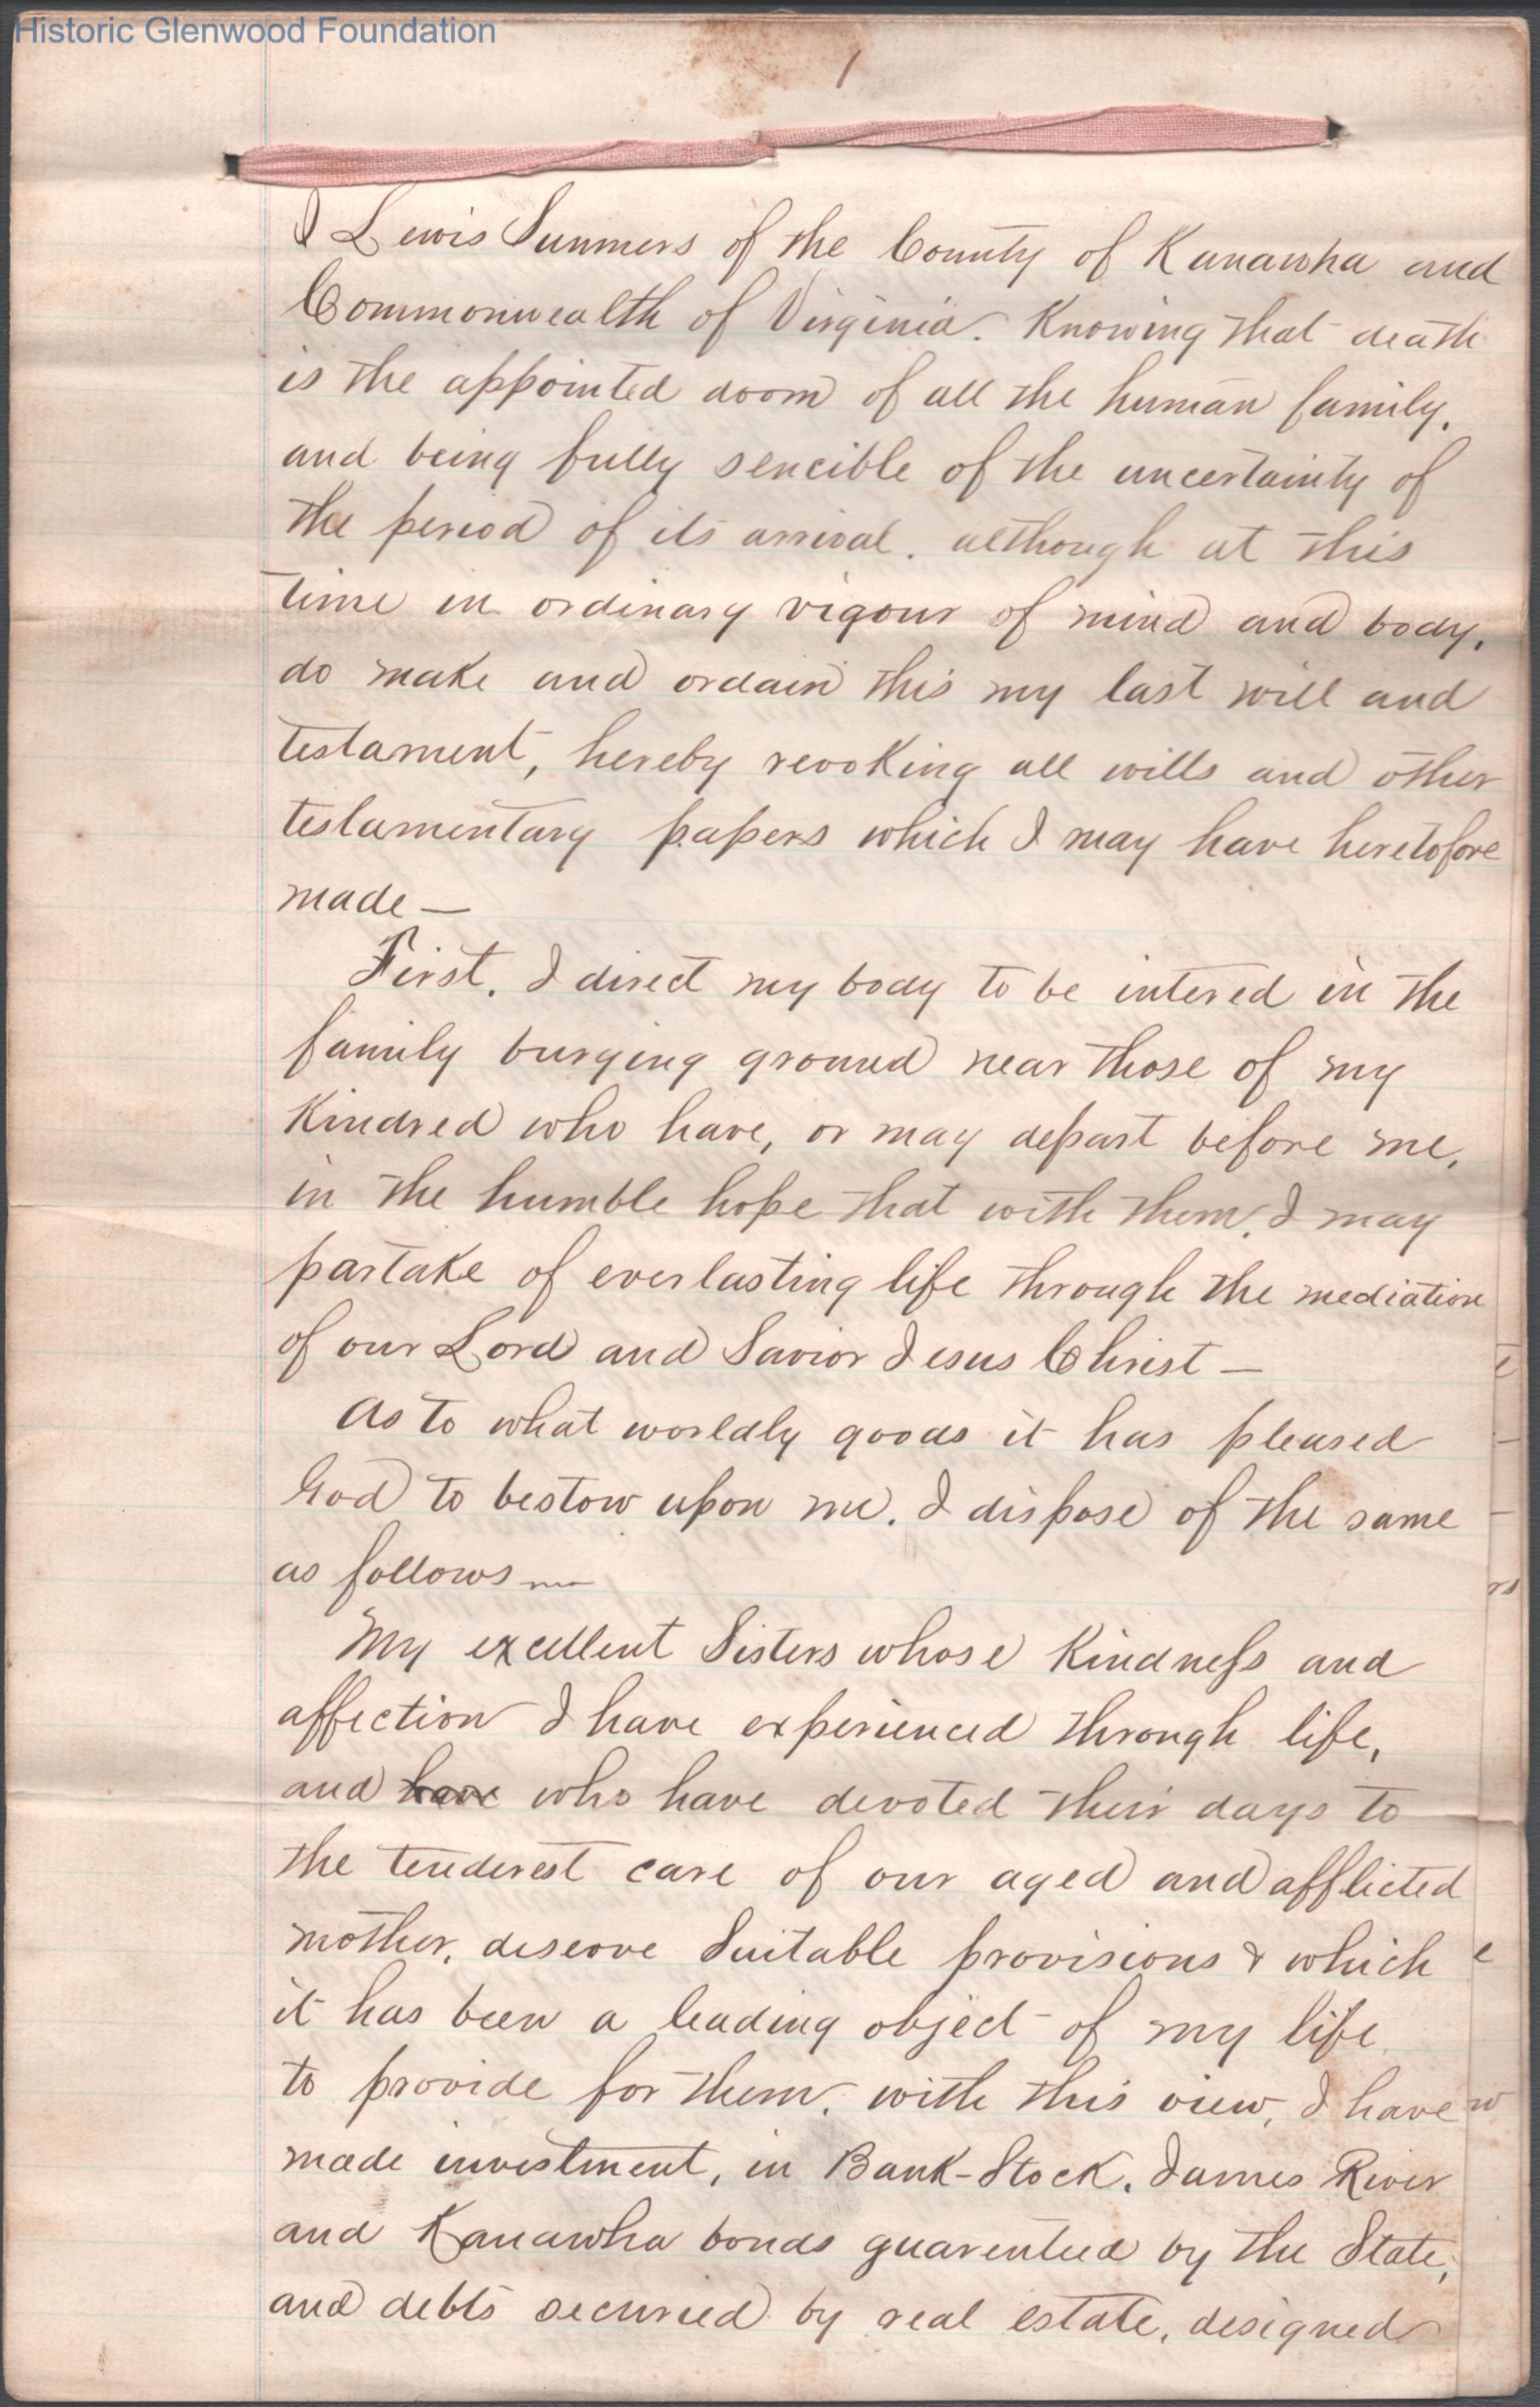 Historic Glenwood Foundation
1
I Lewis Summers of the County of Kanawha and
Commonwealth of Virginia. Knowing that death
is the appointed doom of all the human family,
and being fully sencible of the uncertainty of
the period of its arrival. although at this
time in ordinary vigour of mind and body,
do make and ordain this my last will and
testament, hereby revoking all wills and other
testamentary papers which I may have heretofore
made —
First. I direct my body to be intered in the
family burying ground near those of my
Kindred who have, or may depart before me,
in the humble hope that with them, I may
partake of everlasting life through the mediation
of our Lord and Savior Jesus Christ —
As to what worldly goods it has pleased
God to bestow upon me. I dispose of the same
as follows —
My excellent Sisters whose Kindness and
affection I have experienced through life,
and have who have devoted their days to
the tenderest care of our aged and afflicted
mother, deserve Suitable provisions & which
it has been a leading object of my life
to provide for them. with this view, I have
made investment, in Bank-Stock. James River
and Kanawha bonds guarenteed by the State,
and debts secured by real estate, designed